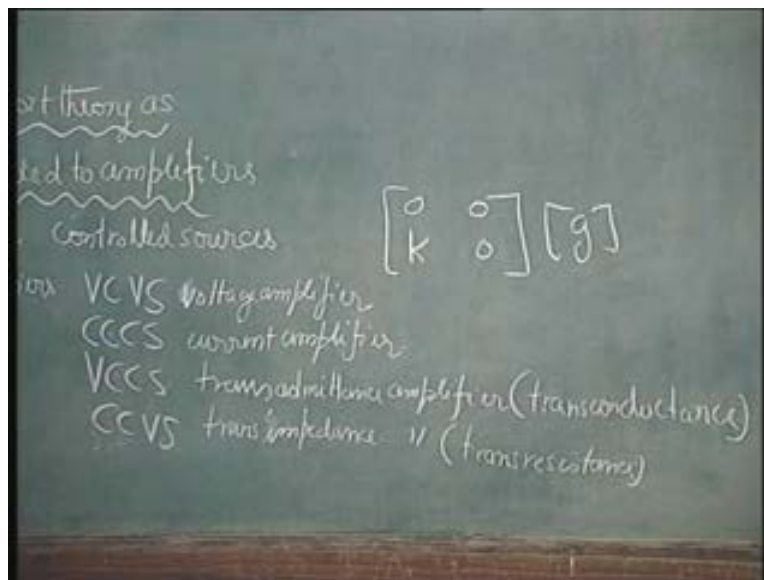 ort theory as
ied to amplifiers
controlled sources
iers VCVS voltage amplifier
CCCS current amplifier
VCCS transadmittance amplifier (transconductance)
CCVS transimpedance " (transresistance)
[0 0
K 0] [g]